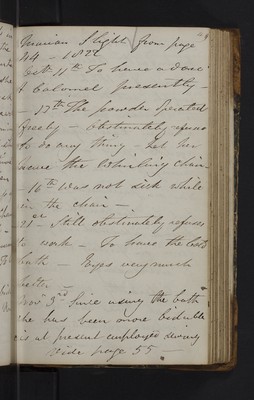 Slight from page
44 - 1822
11th To have a Dose
Calomel presently -
- 13th The powder operated
freely - Obstinately refuses
to do any thing - let her
have the Whirling Chair
- 16th Was not sick while
in the chair -
- Still obstinately refuses
to work - To have the
bath - very much
better -
Nov 3rd Since using the bath
she has been more tractable
is at present employed sewing
Vide page 55 -